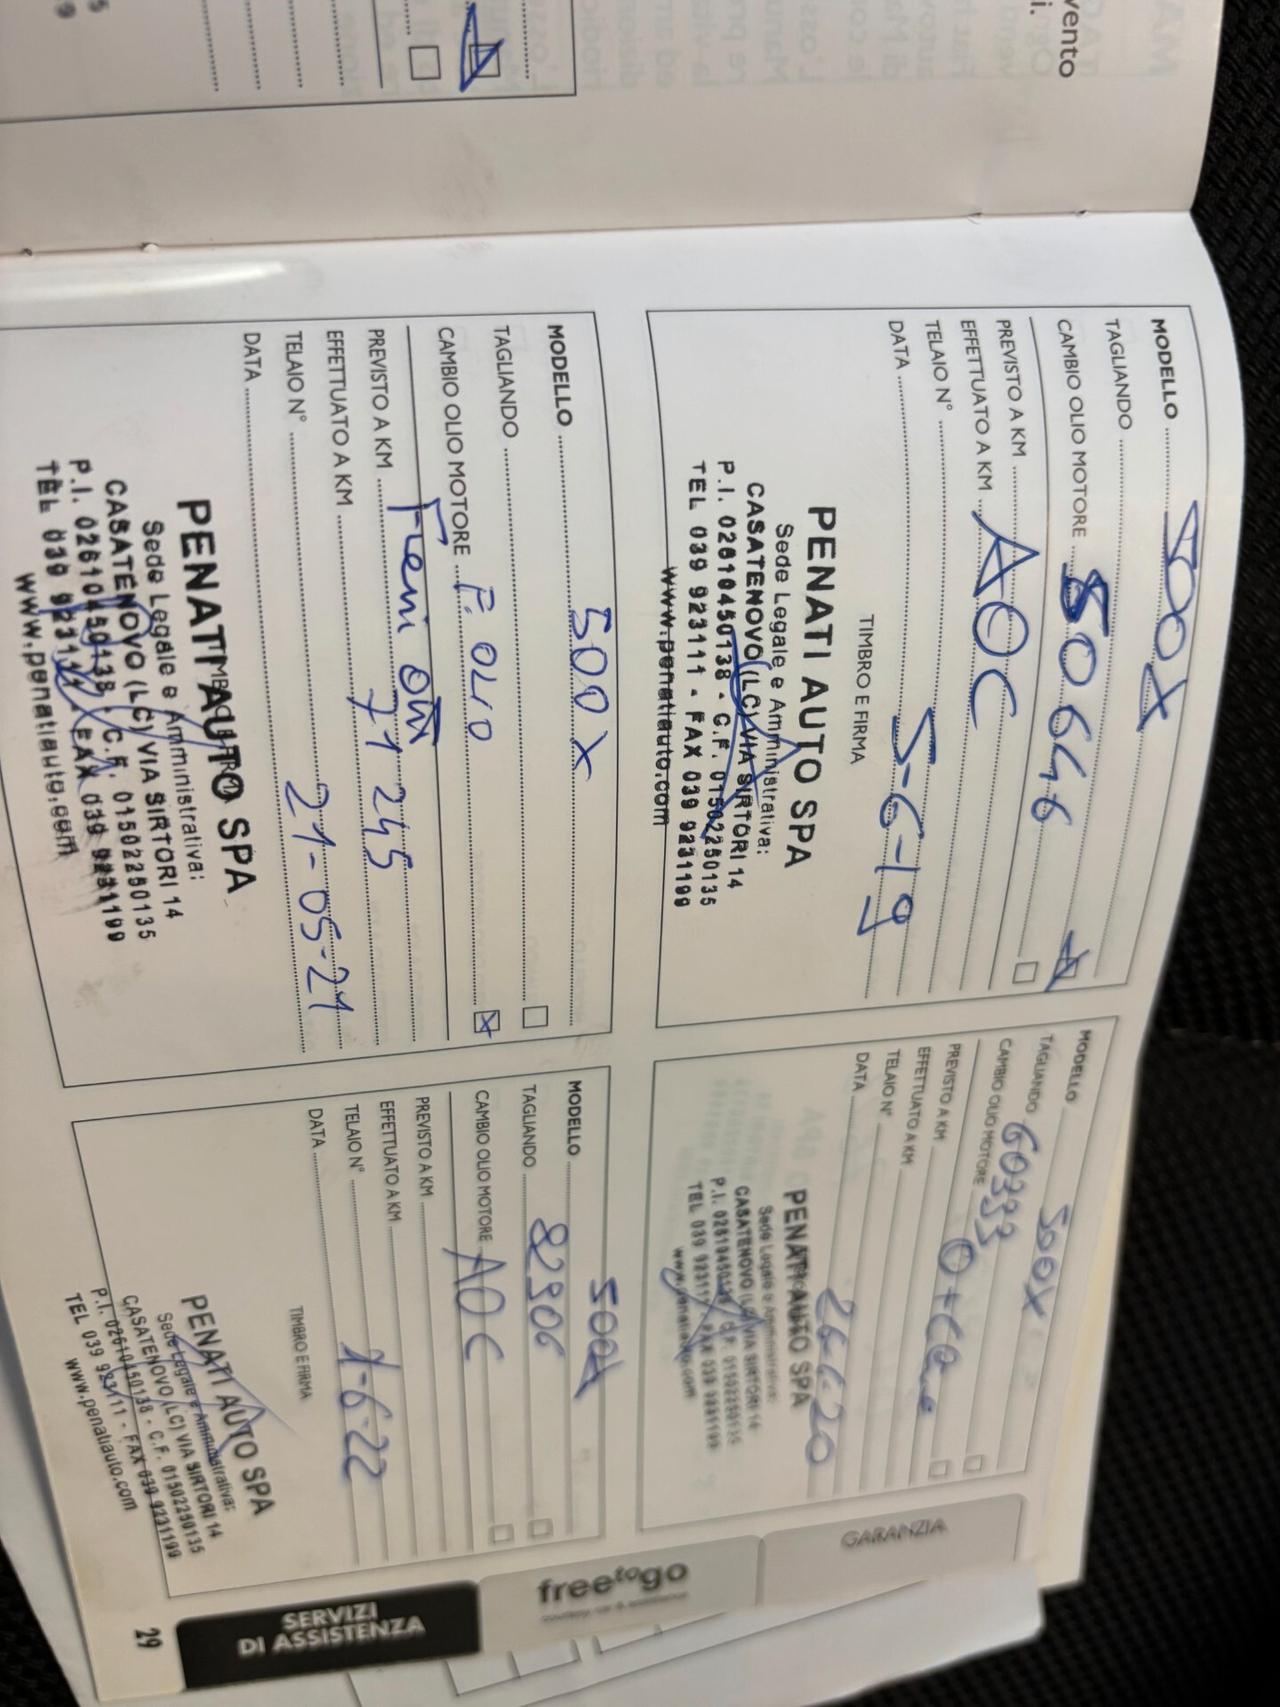 vento
i.
MODELLO 500X
TAGLIANDO
CAMBIO OLIO MOTORE 50646
PREVISTO A KM
EFFETTUATO A KM AOC
TELAIO N°
DATA 5-6-19
TIMBRO E FIRMA
PENATI AUTO SPA
Sede Legale e Amministrativa:
CASATENOVO (LC) VIA SIRTORI 14
P.I. 02610450138 - C.F. 01502250135
TEL 039 923111 - FAX 039 9231199
www.penatiauto.com
MODELLO 500X
TAGLIANDO 60393
CAMBIO OLIO MOTORE
PREVISTO A KM
EFFETTUATO A KM
TELAIO N°
DATA 26-6-20
PENATI AUTO SPA
Sede Legale e Amministrativa:
CASATENOVO (LC) VIA SIRTORI 14
P.I. 02610450138 - C.F. 01502250135
TEL 039 923111 - FAX 039 9231199
www.penatiauto.com
MODELLO 500X
TAGLIANDO
CAMBIO OLIO MOTORE F. OLIO
Freni
PREVISTO A KM 71245
EFFETTUATO A KM
TELAIO N° 21-05-21
DATA
PENATI AUTO SPA
Sede Legale e Amministrativa:
CASATENOVO (LC) VIA SIRTORI 14
P.I. 02610450138 - C.F. 01502250135
TEL 039 923111 - FAX 039 9231199
www.penatiauto.com
MODELLO 500X
TAGLIANDO 82906
CAMBIO OLIO MOTORE AOC
PREVISTO A KM
EFFETTUATO A KM
TELAIO N° 1-6-22
DATA
TIMBRO E FIRMA
PENATI AUTO SPA
Sede Legale e Amministrativa:
CASATENOVO (LC) VIA SIRTORI 14
P.I. 02610450138 - C.F. 01502250135
TEL 039 923111 - FAX 039 9231199
www.penatiauto.com
GARANZIA
freetogo
SERVIZI
DI ASSISTENZA
29